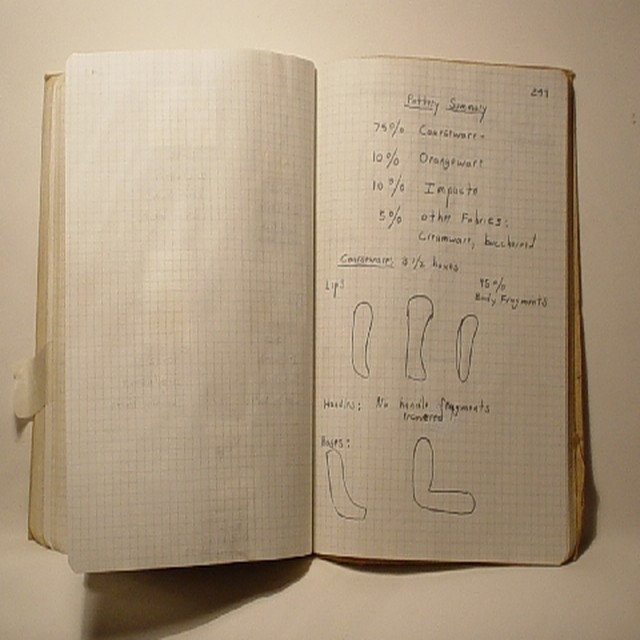 251
Pottery Summary
75% Coarseware
10% Orangeware
10% Impasto
5% other Fabrics:
Creamware, bucchero
Coarseware: 3 1/2 boxes
Lips:
95%
Body Fragments
Handles: No handle fragments
recovered
Bases: